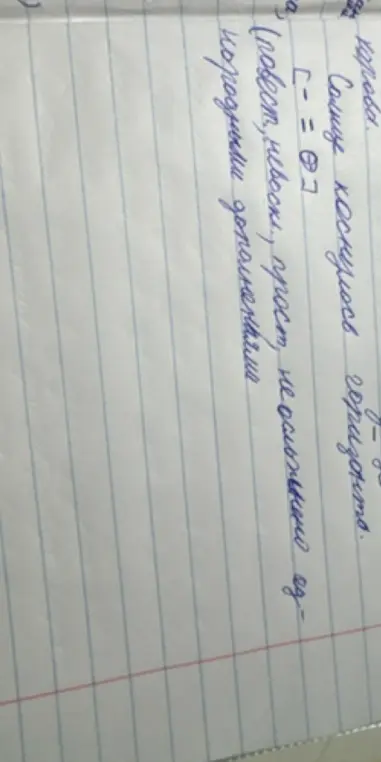 корова.
Солнце коснулось горизонта.
[- = O]
(повест, невоскл., прост, не осложнено од-
нородными дополнениями